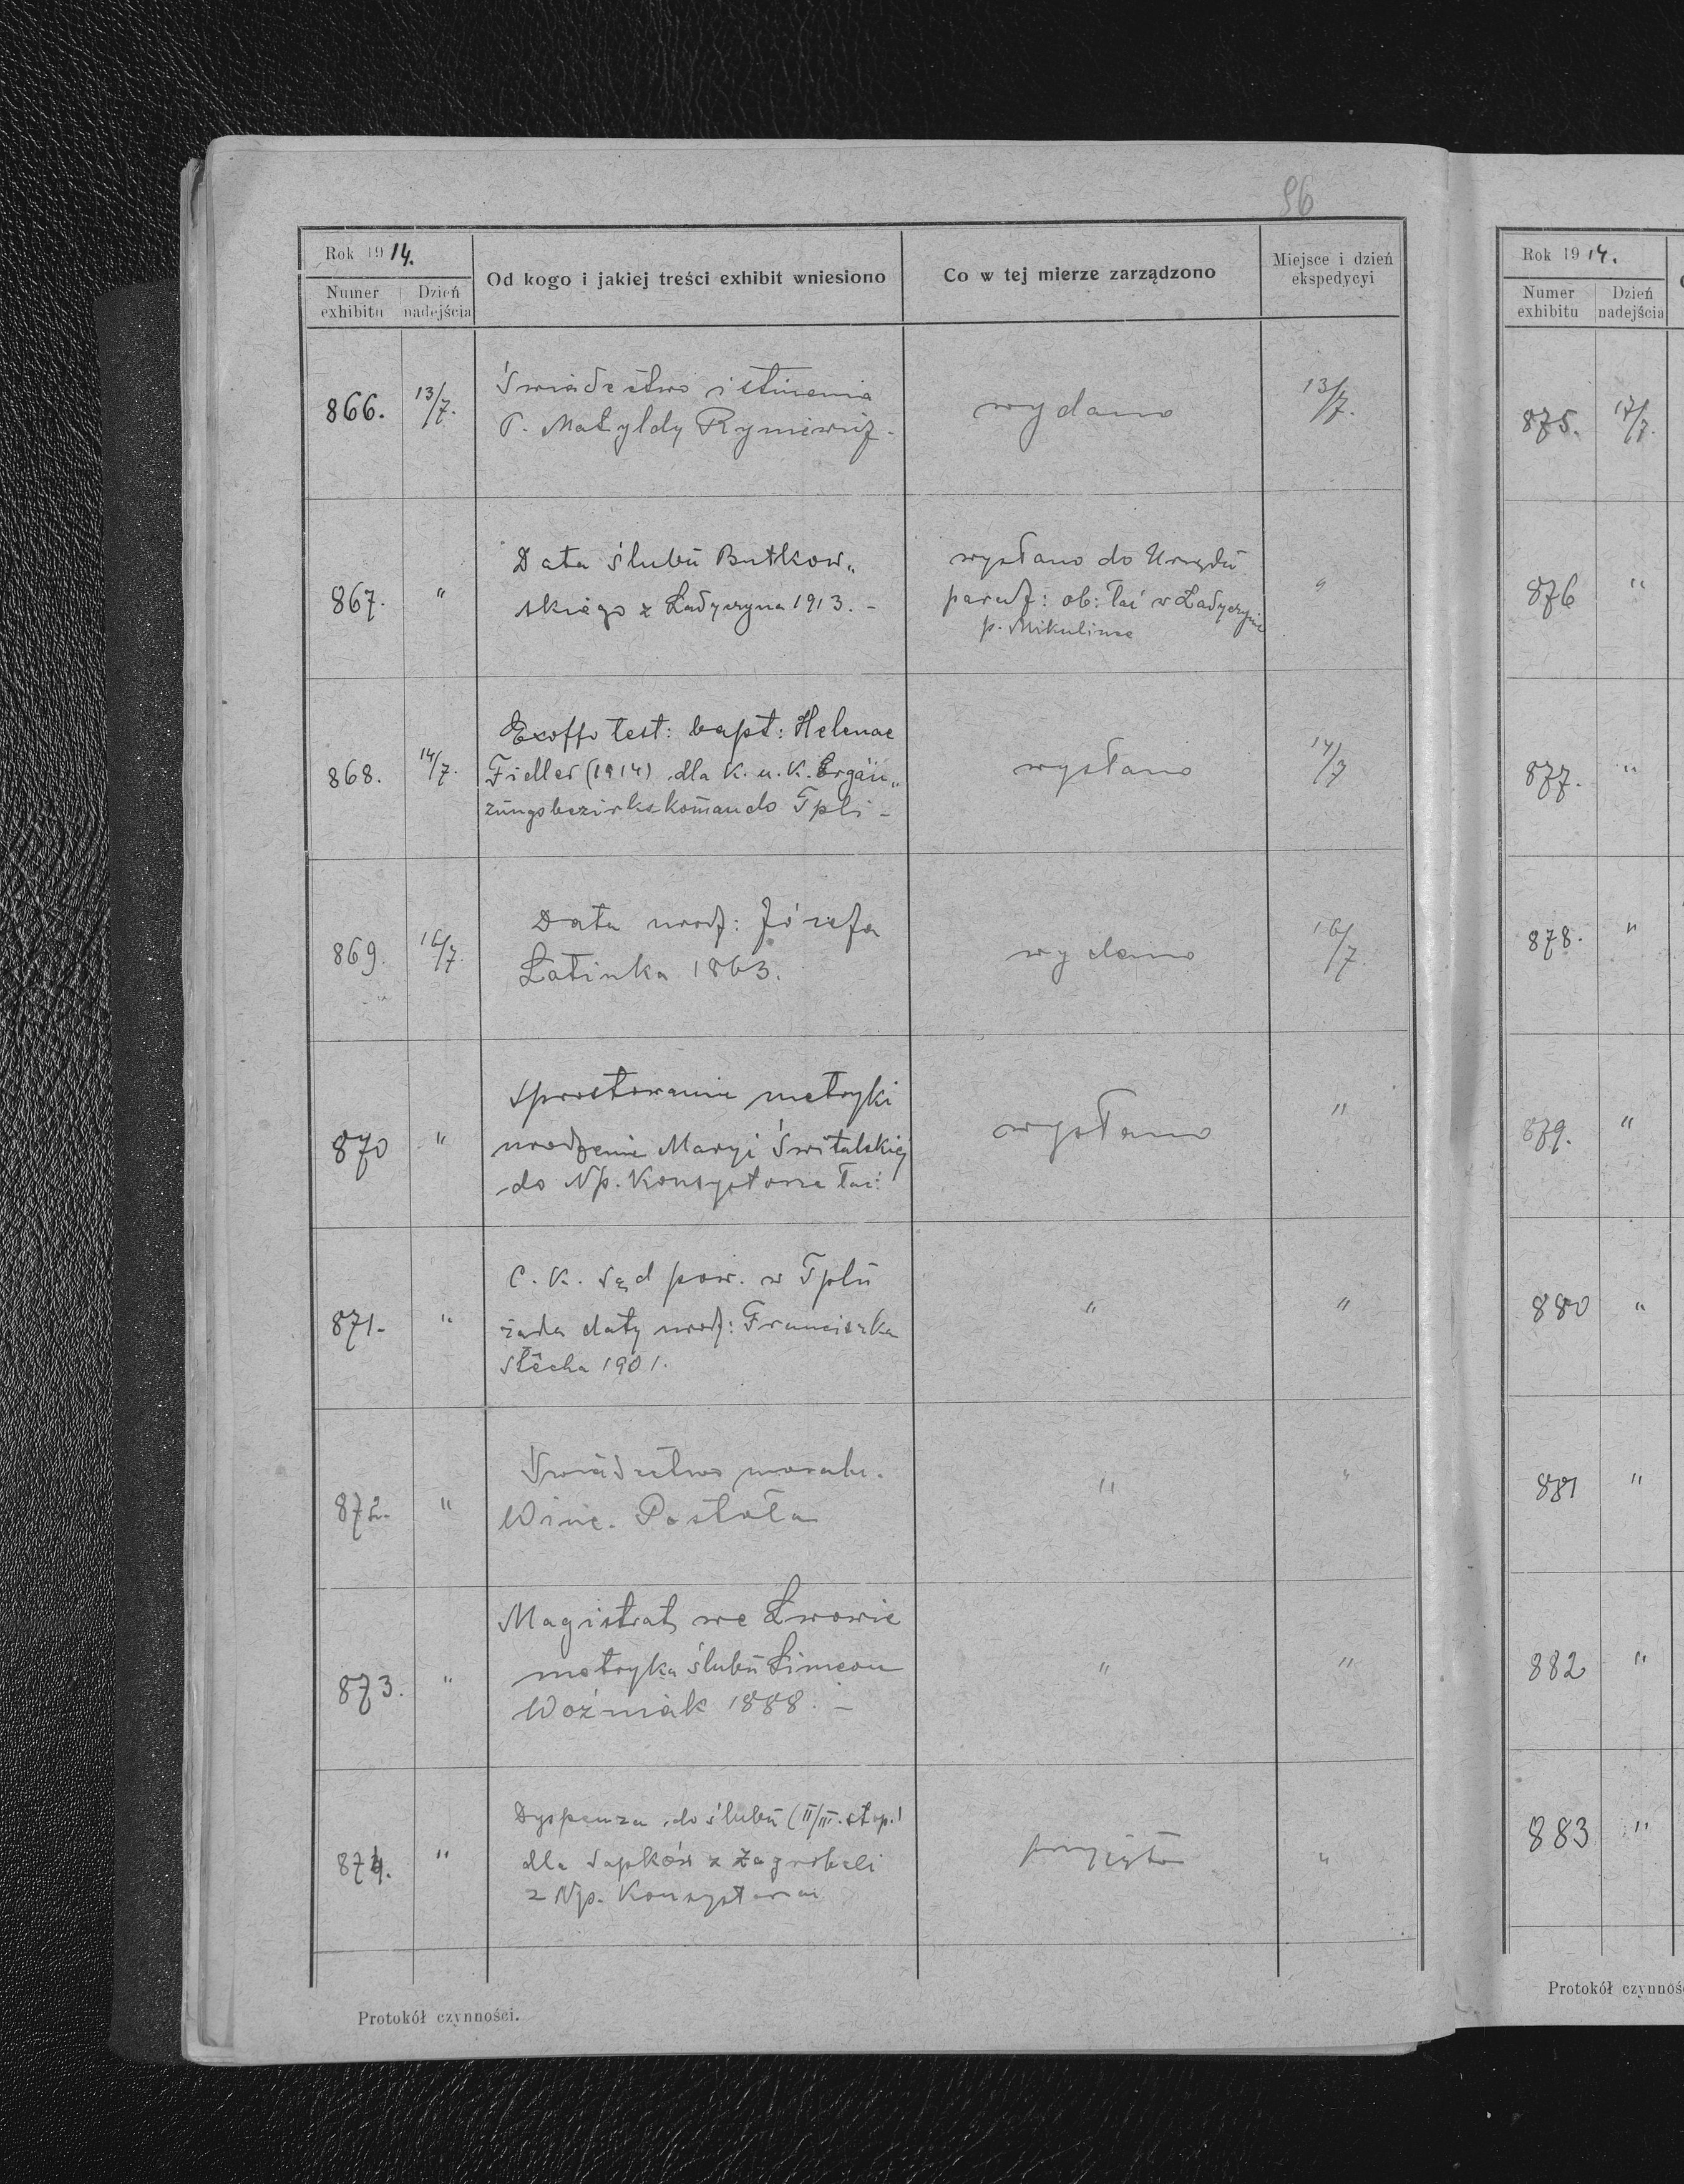 96
Rok 1914.
Numer exhibitu
Dzień nadejścia
Od kogo i jakiej treści exhibit wniesiono
Co w tej mierze zarządzono
Miejsce i dzień ekspedycyi
866. 13/7. Świadectwo istnienia wydano 13/7.
P. Matyldy
867. " Data ślubu Butkow„ wysłano do Urzędu "
skiego z Ładyczyna 1913. – paraf: ob: łać w Ładyczynie
p. Mikulińce
868. 14/7. Exoffo test: bapt: Helenae wysłano 14/7
Fidler (1914) dla K. u. K. Ergän„
zungsbezirkskomando Tpli –
869. 16/7. Data urodz: Józefa wydano 16/7.
Łatinka 1863.
870 " Sprostowanie metryki wysłano "
urodzenia Maryi Świtalskiej
do Np. Konsystorza łać:
871. " C. K. Sąd pow. w Tplu " "
żąda daty urodz: Franciszka
Stecha 1901.
872. " Świadectwo moraln. " "
Winc. Postoła
873. " Magistrat we Lwowie " "
metryka ślubu Simeon
Woźniak 1888. –
874. " Dyspenza do ślubu (II/III. stop.) przyjęto "
dla Sapków z Zagrobeli
z Np. Konsystorza
Protokół czynności.
Rok 1914.
Numer exhibitu
Dzień nadejścia
875. 17/7.
876 "
877. "
878. "
879. "
880 "
881 "
882 "
883 "
Protokół czynnoś